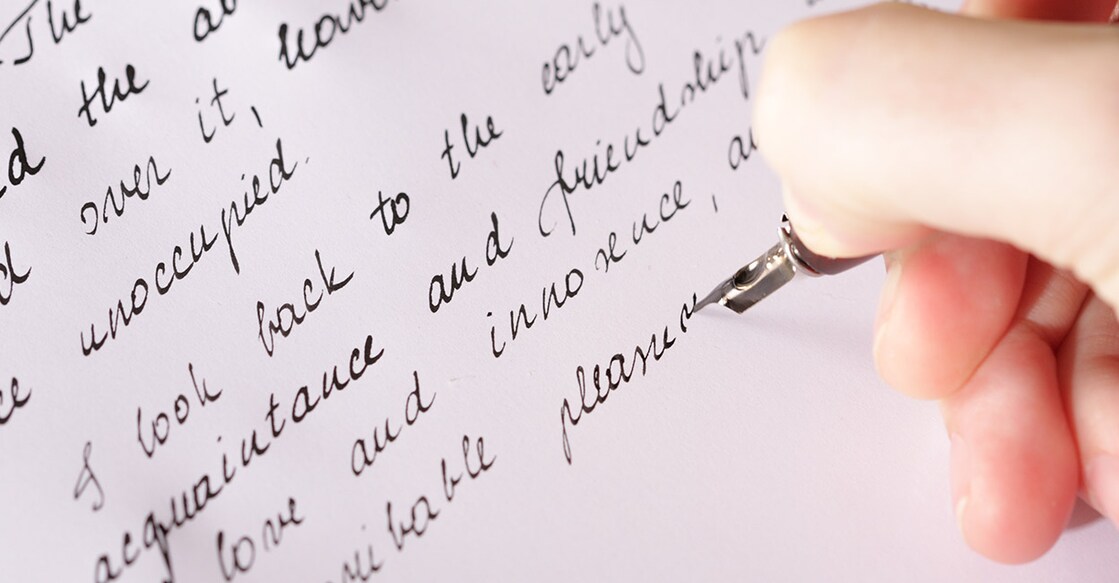 The
the
over it,
unoccupied.
I look back to the early
acquaintance and friendship
love and innosence,
ribable pleasur